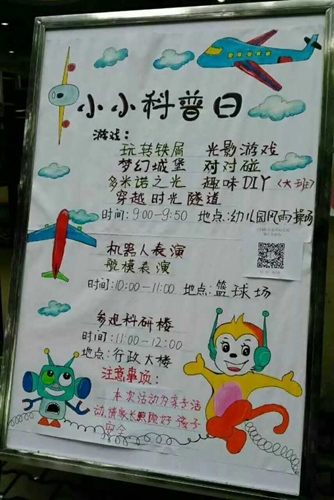 小小科普日
游戏：
玩转铁屑 光影游戏
梦幻城堡 对对碰
多米诺之光 趣味DIY（大班）
穿越时光隧道
时间：9:00-9:50 地点：幼儿园风雨操场
机器人表演
航模表演
时间：10:00-11:00 地点：篮球场
参观科研楼
时间：11:00-12:00
地点：行政大楼
注意事项：
本次活动为亲子活
动，请家长照顾好孩子
安全